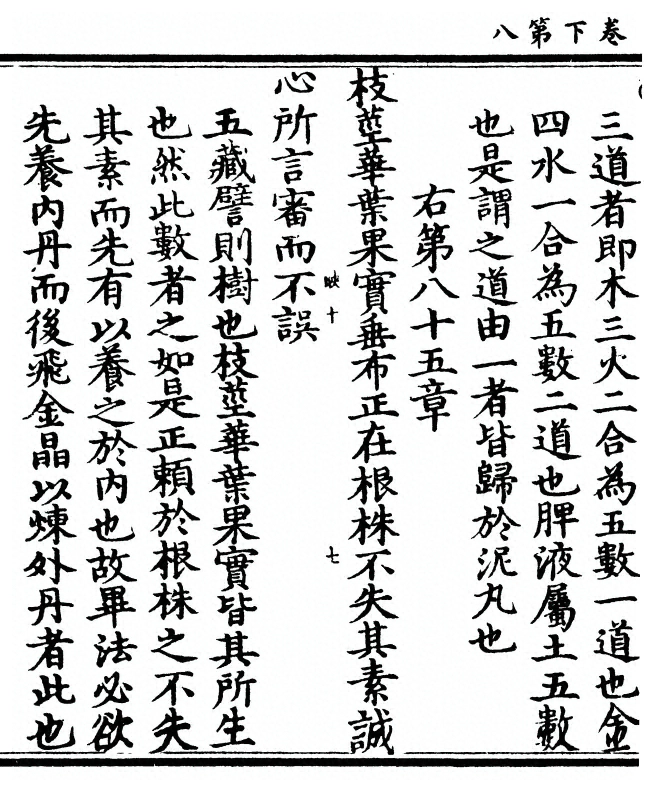 卷下第八
三道者即木三火二合為五數一道也金
四水一合為五數二道也脾液屬土五數
也是謂之道由一者皆歸於泥丸也
右第八十五章
枝莖華葉果實垂布正在根株不失其素誠
映十
七
心所言審而不誤
五藏譬則樹也枝莖華葉果實皆其所生
也然此數者之如是正賴於根株之不失
其素而先有以養之於內也故畢法必欲
先養內丹而後飛金晶以煉外丹者此也